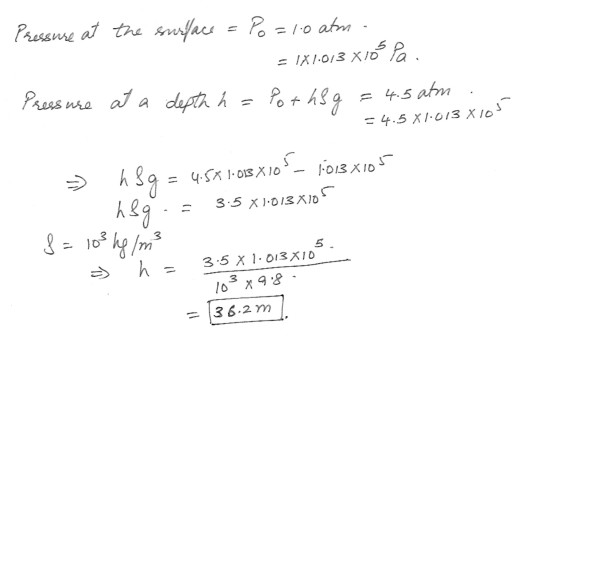 Pressure at the surface = P₀ = 1.0 atm.
= 1×1.013×10⁵ Pa.
Pressure at a depth h = P₀ + hρg = 4.5 atm.
= 4.5×1.013×10⁵
⇒ hρg = 4.5×1.013×10⁵ − 1.013×10⁵
hρg. = 3.5×1.013×10⁵
ρ = 10³ kg/m³
⇒ h = 3.5×1.013×10⁵. / 10³ × 9.8.
= 36.2m.